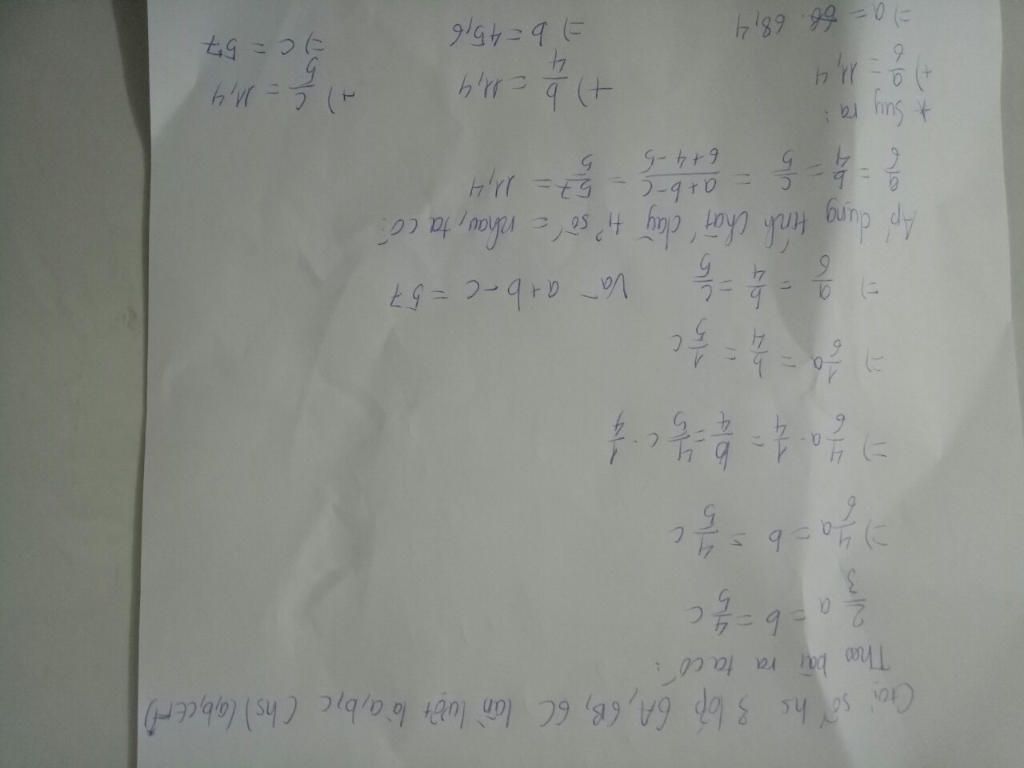 Gọi số hs 3 lớp 6A, 6B, 6C lần lượt là a,b,c (hs) (a,b,c ∈ N*)
Theo bài ra ta có:
2/3 a = b = 4/5 c
=) 4/6 a = b = 4/5 c
=) 4/6 a · 1/4 = b/4 = 4/5 c · 1/4
=) 1/6 a = b/4 = 1/5 c
=) a/6 = b/4 = c/5 Và a+b-c = 57
Áp dụng tính chất dãy tỉ số = nhau, ta có:
a/6 = b/4 = c/5 = a+b-c/6+4-5 = 57/5 = 11,4
* Suy ra:
+) a/6 = 11,4 +) b/4 = 11,4 +) c/5 = 11,4
=) a = 68,4 =) b = 45,6 =) c = 57